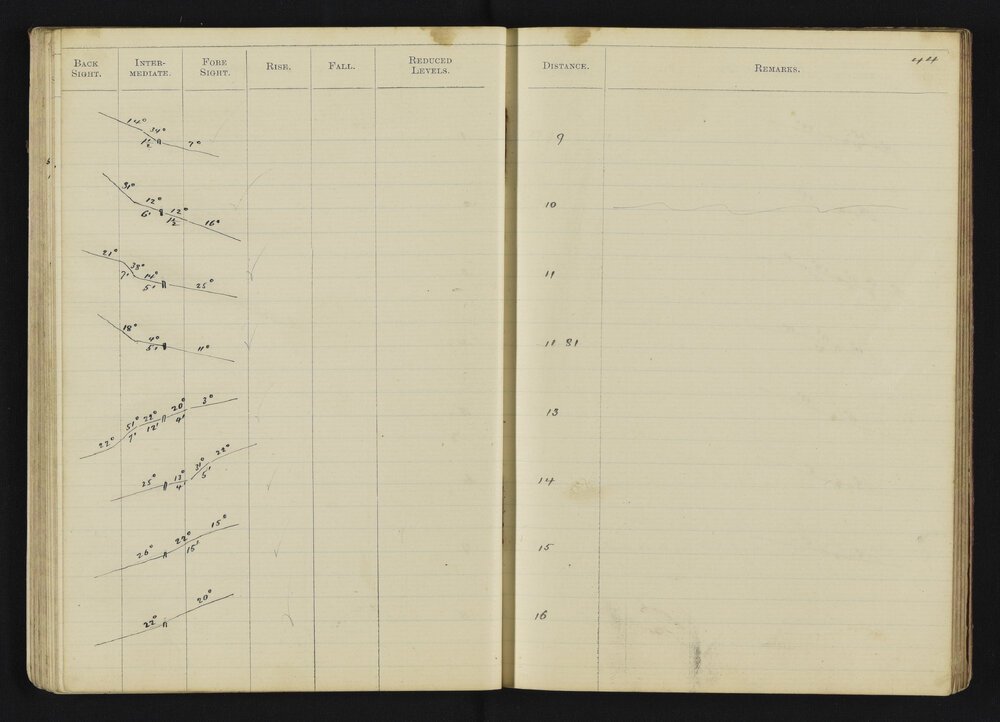 BACK SIGHT. INTER-MEDIATE. FORE SIGHT. RISE. FALL. REDUCED LEVELS. DISTANCE. REMARKS. 44
14° 34° 7° 9
1½
31° 12° 12° 16° 10
6' 1½
21° 38° 14° 25° 11
7' 5'
18° 4° 11° 11 81
5'
22° 51° 22° 20° 3° 13
7' 12' 4'
25° 13° 31° 22° 14
4' 5'
26° 22° 15° 15
15'
22° 20° 16